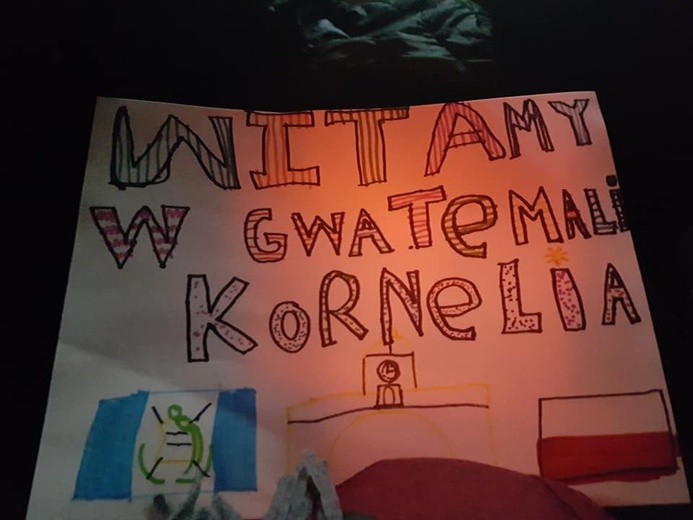 WITAMY
W GWATEMALi
KORNELiA